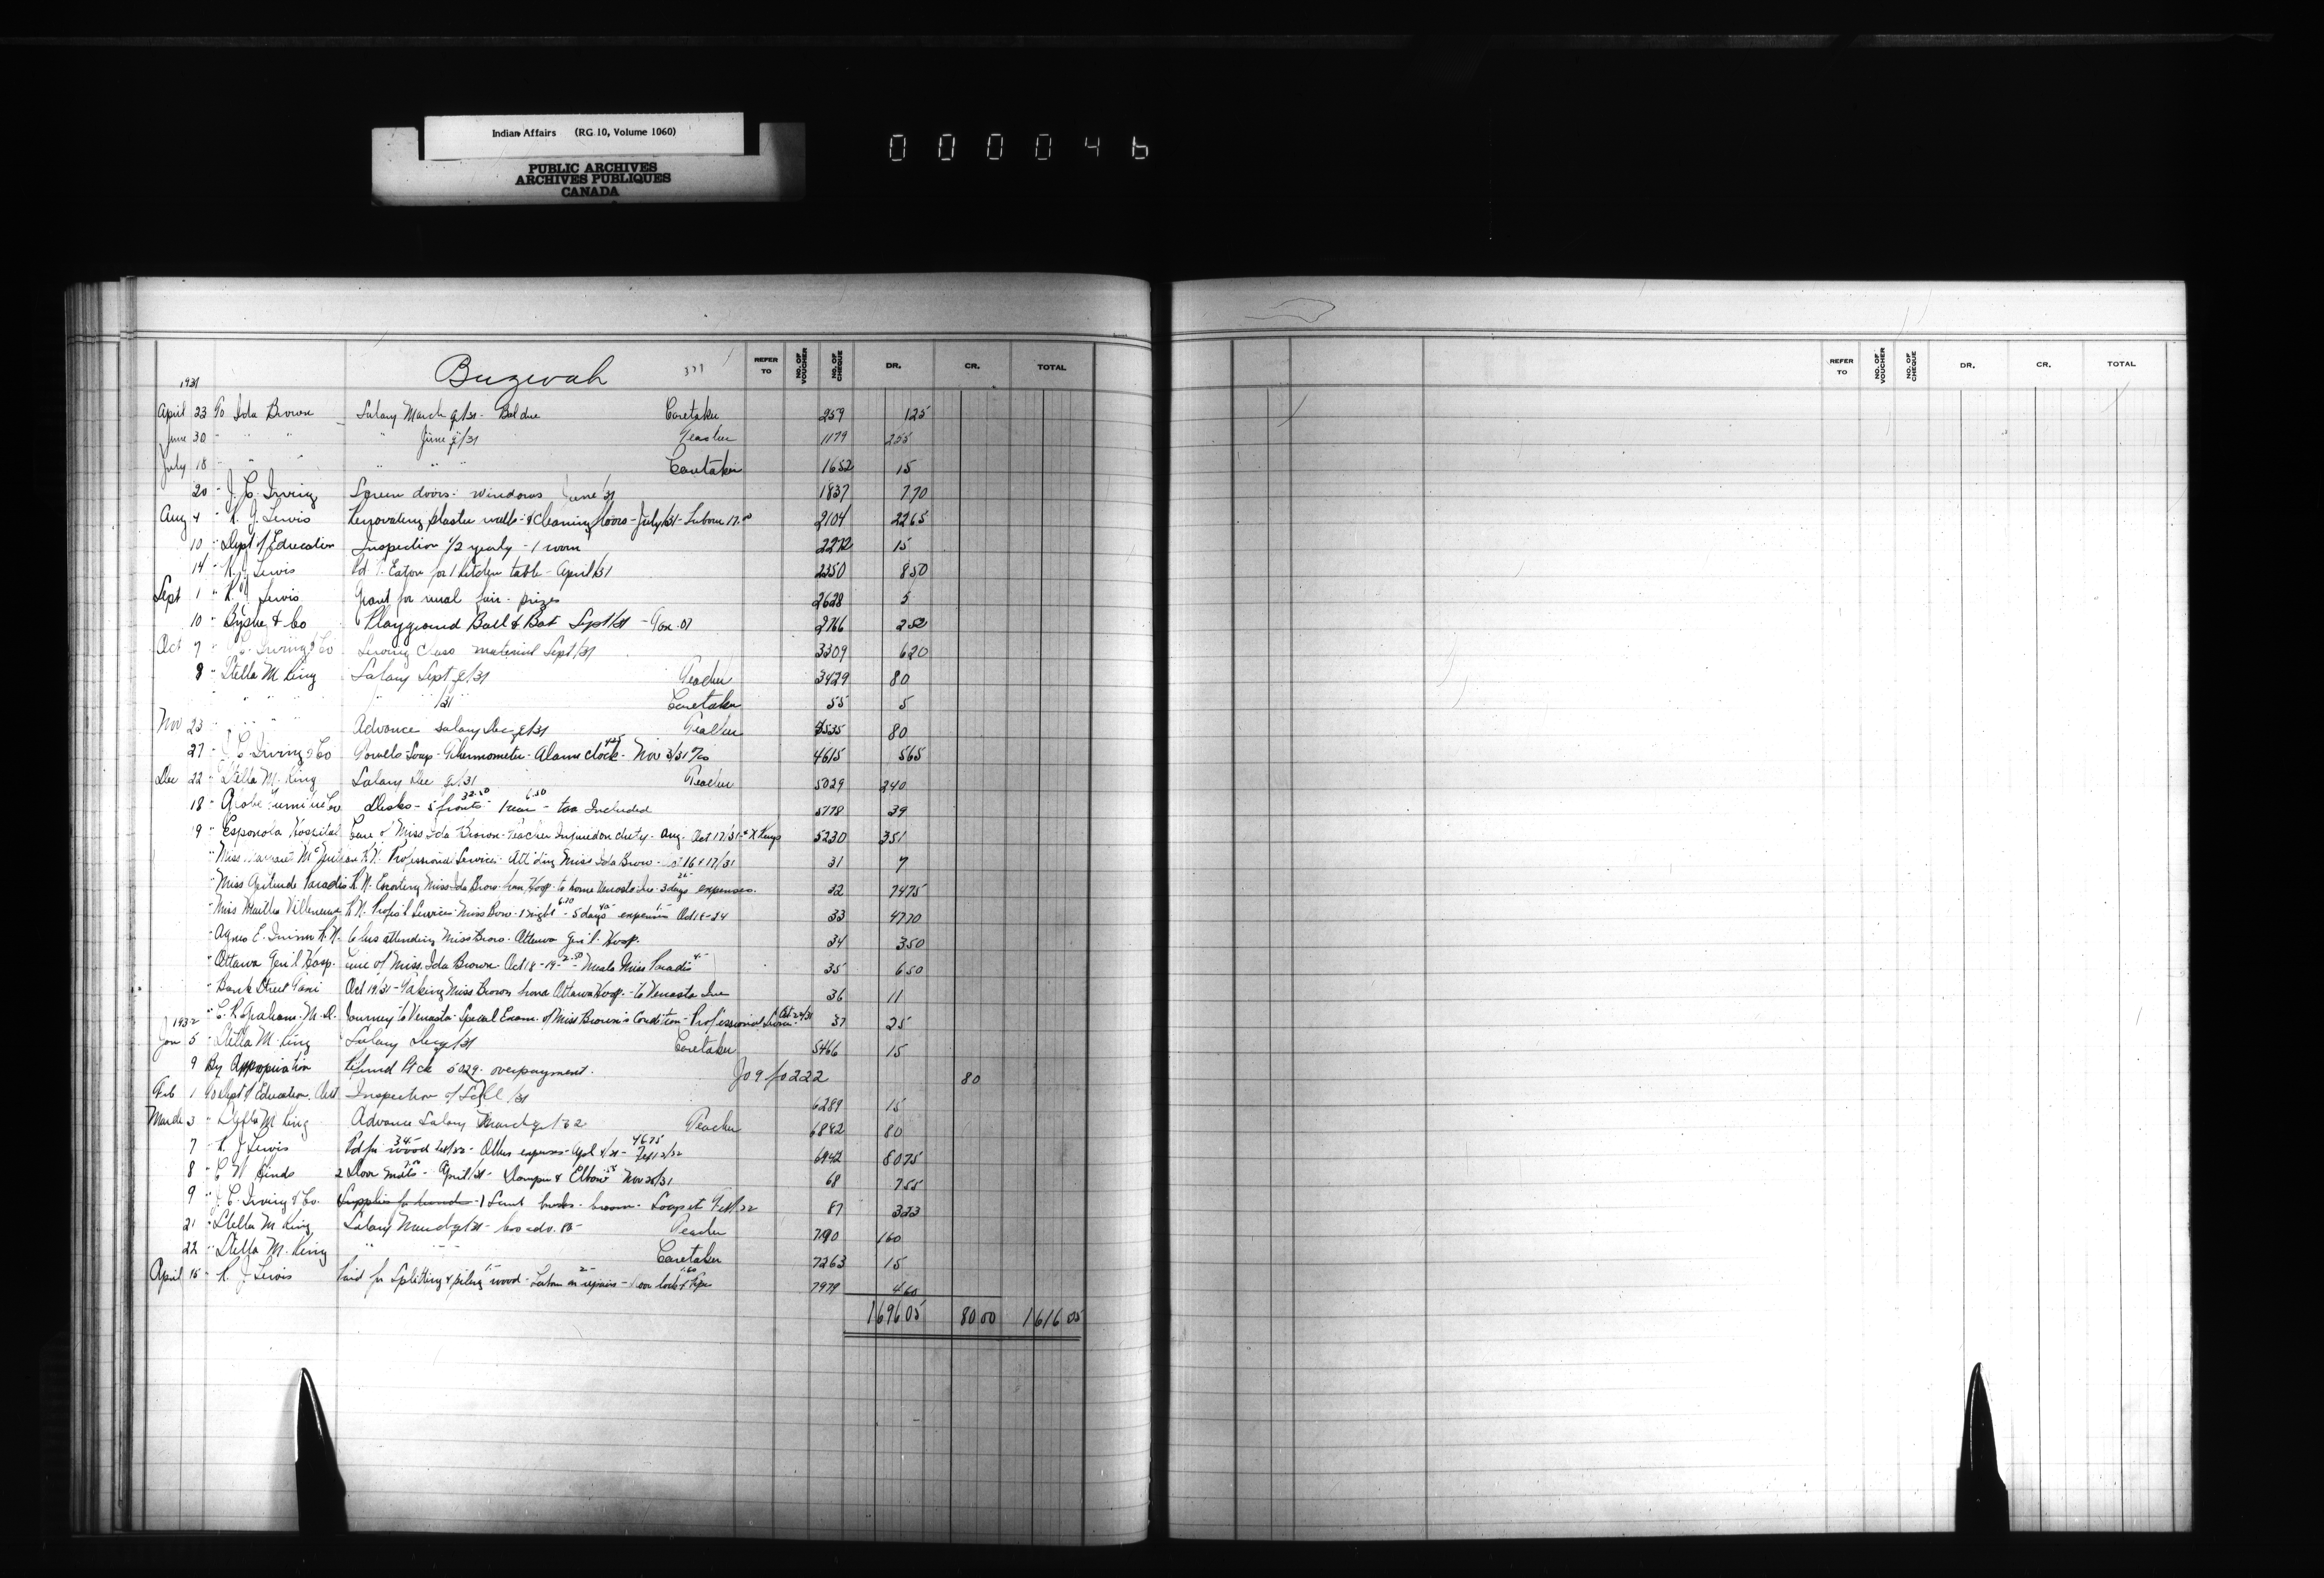 Indian Affairs (RG 10, Volume 1060)
PUBLIC ARCHIVES
ARCHIVES PUBLIQUES
CANADA
000046
Buzwah
REFER TO NO. OF VOUCHER NO. OF CHEQUE DR. CR. TOTAL
REFER TO NO. OF VOUCHER NO. OF CHEQUE DR. CR. TOTAL
1931
April 23 To Ida Brown Salary March q/31 - Bal due Caretaker 259 1 25
June 30 " " " " June q/31 Teacher 1179 255
July 18 " " " " " " Caretaker 1652 15
20 " J. C. Irving Screen doors: windows June/31 1837 7 70
Aug 4 " R. J. Lewis Renovating plaster walls - & Cleaning floors - July/31 - Labour 17.00 2104 22 65
10 " Dept of Education Inspection 1/2 yearly - 1 room 2272 15
14 " R. J. Lewis Pd T. Eaton for 1 kitchen table - April/31 2350 8 50
Sept 1 " R. J. Lewis Grant for rural fair - prizes 2628 5
10 " Byshe & Co Playground Ball & Bat Sept/31 - Tax .07 2766 2 52
Oct 7 " J. C. Irving & Co Sewing Class material Sept/31 3309 6 20
8 " Stella M. King Salary Sept q/31 Teacher 3429 80
" " " " " /31 Caretaker 55 5
Nov 23 " " " Advance salary Dec q/31 Teacher 4535 80
27 " J. C. Irving & Co Towels - Soap - Thermometer - Alarm Clock - Nov 3/31 4615 5 65
Dec 22 " Stella M. King Salary Dec q/31 Teacher 5029 240
18 " Desks - 5 fronts 32.50 - 1 rear 6.50 - tax Included 5778 39
19 " Espanola Hospital Care of Miss Ida Brown - Teacher Injured on duty - Aug - Oct 17/31 & X Rays 5230 351
" Miss R.N. Professional Services - Att'ding Miss Ida Brow - 16 & 17/31 31 7
" Miss Gertrude Paradis R.N. Escorting Miss Ida Brow from Hosp - to home Venosta Que - 3 days expenses. 32 74 75
" Miss Martha Villeneuve R.N. Profes'l Services Miss Brow - 1 night - 5 days - expenses Oct 18-24 33 47 70
" Agnes E. R.N. 6 hrs attending Miss Brow - Ottawa Gen'l - Hosp. 34 3 50
" Ottawa Gen'l Hosp. Care of Miss Ida Brown - Oct 18-19 - 2.50 - Meals Miss Paradis 4.- 35 6 50
" Bank Street Taxi Oct 19/31 - Taking Miss Brown from Ottawa Hosp. - to Venosta Que 36 11
" C. R. Graham M.D. Journey to Venosta - Special Exam. of Miss Brown's Condition - Professional Services 37 25
1932
Jan 5 " Stella M. King Salary Dec q/31 Caretaker 5466 15
9 By Appropriation Refund Pt ck 5029 - overpayment. Jo 9 fo 222 80
Feb 1 To Dept of Education, Ont Inspection of School /31 6289 15
March 3 " Stella M King Advance Salary March q/32 Teacher 6842 80
7 " R. J. Lewis Pd for 34.- wood - Other expenses - 46.75 6942 80 75
8 " C W Hinds 2 Door mats - April/31 - Damper & Elbow Nov 25/31 68 7 55
9 " J. C. Irving & Co. Supplies - broom - Soap 87 3 23
21 " Stella M King Salary March q/31 - less adv. 80- Teacher 7190 160
22 " Stella M. King " " " Caretaker 7263 15
April 15 " R. J. Lewis Paid for Splitting & piling wood - Labour on repairs - 1 door lock 7979 4 60
1696 05 80 00 1616 05